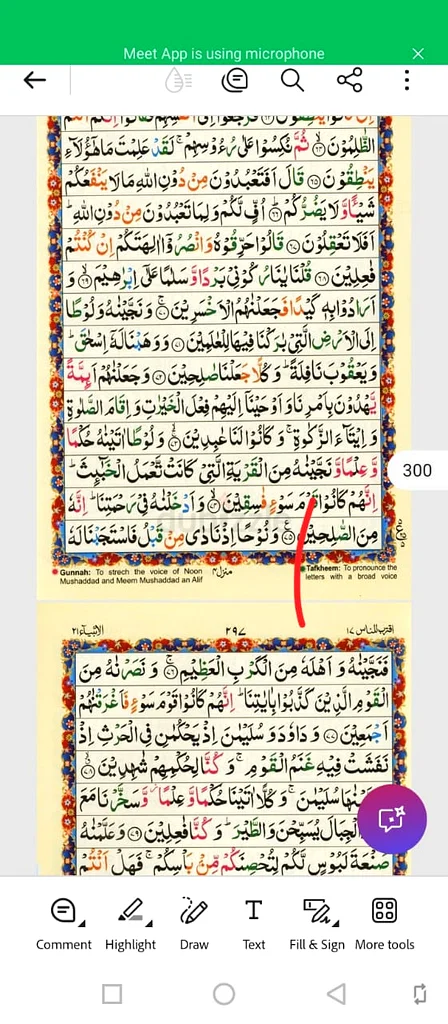 Meet App is using microphone
الظّٰلِمُوْنَ ۙ۝۶۴ ثُمَّ نُكِسُوْا عَلٰى رُءُوْسِهِمْ ۚ لَقَدْ عَلِمْتَ مَا هٰۤؤُلَآءِ
يَنْطِقُوْنَ ۝۶۵ قَالَ اَفَتَعْبُدُوْنَ مِنْ دُوْنِ اللّٰهِ مَا لَا يَنْفَعُكُمْ
شَيْـًٔا وَّلَا يَضُرُّكُمْ ۝۶۶ اُفٍّ لَّكُمْ وَلِمَا تَعْبُدُوْنَ مِنْ دُوْنِ اللّٰهِ ؕ
اَفَلَا تَعْقِلُوْنَ ۝۶۷ قَالُوْا حَرِّقُوْهُ وَانْصُرُوْۤا اٰلِهَتَكُمْ اِنْ كُنْتُمْ
فٰعِلِيْنَ ۝۶۸ قُلْنَا يٰنَارُ كُوْنِيْ بَرْدًا وَّسَلٰمًا عَلٰۤى اِبْرٰهِيْمَ ۝۶۹ وَ
اَرَادُوْا بِهٖ كَيْدًا فَجَعَلْنٰهُمُ الْاَخْسَرِيْنَ ۝۷۰ وَنَجَّيْنٰهُ وَلُوْطًا
اِلَى الْاَرْضِ الَّتِيْ بٰرَكْنَا فِيْهَا لِلْعٰلَمِيْنَ ۝۷۱ وَوَهَبْنَا لَهٗۤ اِسْحٰقَ ؕ
وَيَعْقُوْبَ نَافِلَةً ؕ وَكُلًّا جَعَلْنَا صٰلِحِيْنَ ۝۷۲ وَجَعَلْنٰهُمْ اَئِمَّةً
يَّهْدُوْنَ بِاَمْرِنَا وَاَوْحَيْنَاۤ اِلَيْهِمْ فِعْلَ الْخَيْرٰتِ وَاِقَامَ الصَّلٰوةِ
وَاِيْتَآءَ الزَّكٰوةِ ۚ وَكَانُوْا لَنَا عٰبِدِيْنَ ۝۷۳ وَلُوْطًا اٰتَيْنٰهُ حُكْمًا
وَّعِلْمًا وَّنَجَّيْنٰهُ مِنَ الْقَرْيَةِ الَّتِيْ كَانَتْ تَّعْمَلُ الْخَبٰٓئِثَ ؕ
300
اِنَّهُمْ كَانُوْا قَوْمَ سَوْءٍ فٰسِقِيْنَ ۝۷۴ وَاَدْخَلْنٰهُ فِيْ رَحْمَتِنَا ؕ اِنَّهٗ
مِنَ الصّٰلِحِيْنَ ۝۷۵ وَنُوْحًا اِذْ نَادٰى مِنْ قَبْلُ فَاسْتَجَبْنَا لَهٗ
Gunnah: To strech the voice of Noon Mushaddad and Meem Mushaddad an Alif
منزل۴
Tafkheem: To pronounce the letters with a broad voice
اقترب للناس ۱۷
۲۹۷
الانبیآء ۲۱
فَنَجَّيْنٰهُ وَاَهْلَهٗ مِنَ الْكَرْبِ الْعَظِيْمِ ۝۷۶ وَنَصَرْنٰهُ مِنَ
الْقَوْمِ الَّذِيْنَ كَذَّبُوْا بِاٰيٰتِنَا ؕ اِنَّهُمْ كَانُوْا قَوْمَ سَوْءٍ فَاَغْرَقْنٰهُمْ
اَجْمَعِيْنَ ۝۷۷ وَدَاوٗدَ وَسُلَيْمٰنَ اِذْ يَحْكُمٰنِ فِي الْحَرْثِ اِذْ
نَفَشَتْ فِيْهِ غَنَمُ الْقَوْمِ ۚ وَكُنَّا لِحُكْمِهِمْ شٰهِدِيْنَ ۝۷۸
سُلَيْمٰنَ ۚ وَكُلًّا اٰتَيْنَا حُكْمًا وَّعِلْمًا ؗ وَّسَخَّرْنَا مَعَ
الْجِبَالَ يُسَبِّحْنَ وَالطَّيْرَ ؕ وَكُنَّا فٰعِلِيْنَ ۝۷۹ وَعَلَّمْنٰهُ
صَنْعَةَ لَبُوْسٍ لَّكُمْ لِتُحْصِنَكُمْ مِّنْۢ بَاْسِكُمْ ۚ فَهَلْ اَنْتُمْ
Comment Highlight Draw Text Fill & Sign More tools